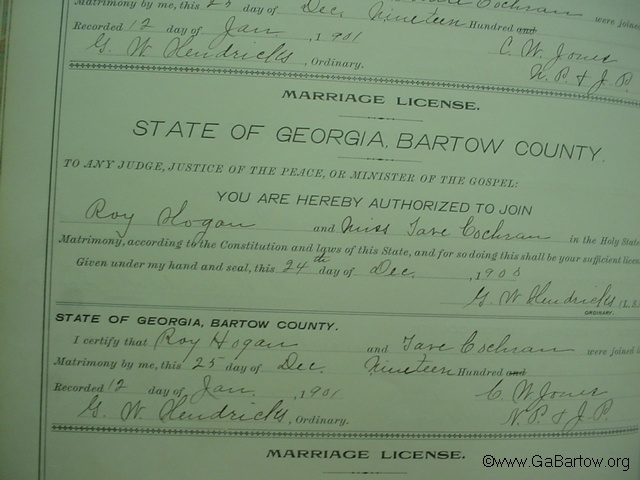 Matrimony by me, this 25 day of Dec. Nineteen Hundred and
Recorded 12 day of Jan , 1901 C. W. Jones
G. W. Hendricks , Ordinary. N. P. & J. P.
MARRIAGE LICENSE.
STATE OF GEORGIA, BARTOW COUNTY.
TO ANY JUDGE, JUSTICE OF THE PEACE, OR MINISTER OF THE GOSPEL:
YOU ARE HEREBY AUTHORIZED TO JOIN
Roy Hogan and Miss Tave Cochran in the Holy State
Matrimony, according to the Constitution and laws of this State, and for so doing this shall be your sufficient licen
Given under my hand and seal, this 24th day of Dec. , 1900
G. W. Hendricks (L.S.
ORDINARY.
STATE OF GEORGIA, BARTOW COUNTY.
I certify that Roy Hogan and Tave Cochran were joined i
Matrimony by me, this 25 day of Dec. Nineteen Hundred and
Recorded 12 day of Jan. , 1901 C. W. Jones
G. W. Hendricks , Ordinary. N. P. & J. P.
MARRIAGE LICENSE.
©www.GaBartow.org